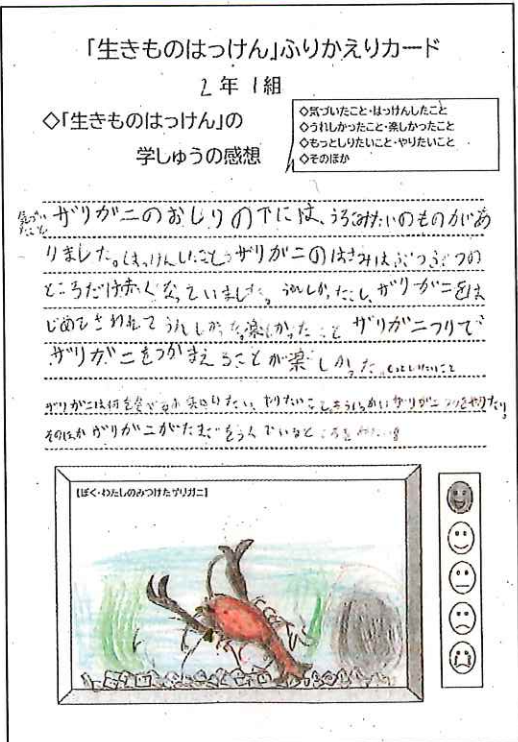 「生きものはっけん」ふりかえりカード
2年 1組
◇「生きものはっけん」の
学しゅうの感想
◇気づいたこと・はっけんしたこと
◇うれしかったこと・楽しかったこと
◇もっとしりたいこと・やりたいこと
◇そのほか
気づいたこと ザリガニのおしりの下には、うろこみたいのものがあ
りました。はっけんしたこと ザリガニのはさみはぶつぶつの
ところだけ赤くなっていました。うれしかったこと ザリガニをは
じめてさわれてうれしかった。楽しかったこと ザリガニつりで
ザリガニをつかまえることが楽しかった。もっとしりたいこと
ザリガニは何を食べ しりたい、やりたいこともう ザリガニつりをやりたい。
そのほか ザリガニがたまごをうんでいるところを
【ぼく・わたしのみつけたザリガニ】